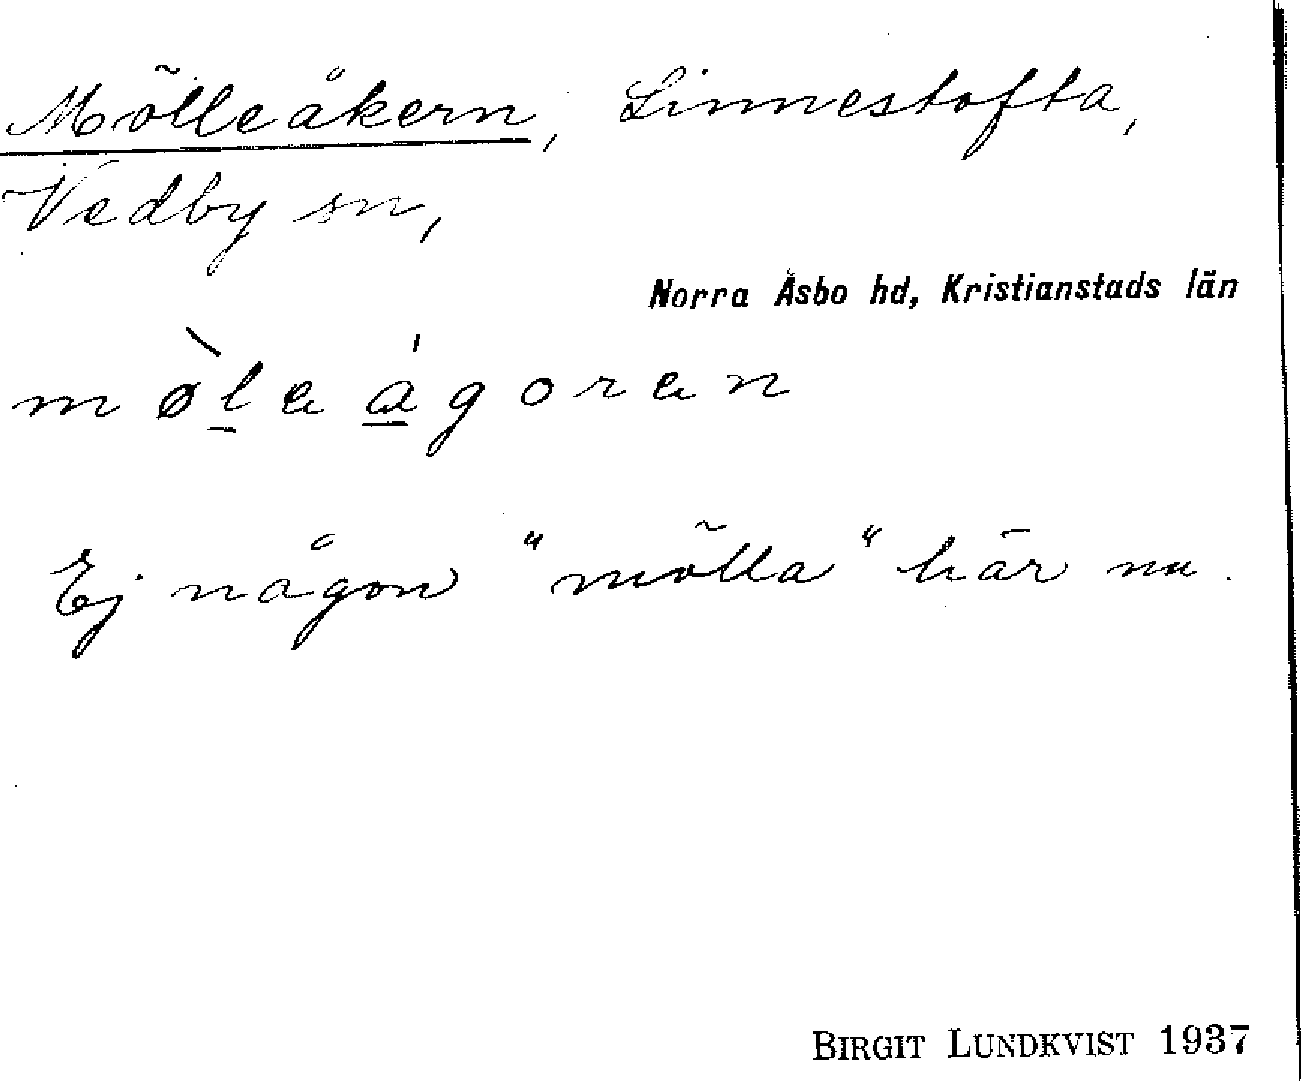 Mölleåkern, Linnestofta,
Vedby sn,
Norra Åsbo hd, Kristianstads län
mø̀leágoren
Ej någon "mölla" här nu.
BIRGIT LUNDKVIST 1937